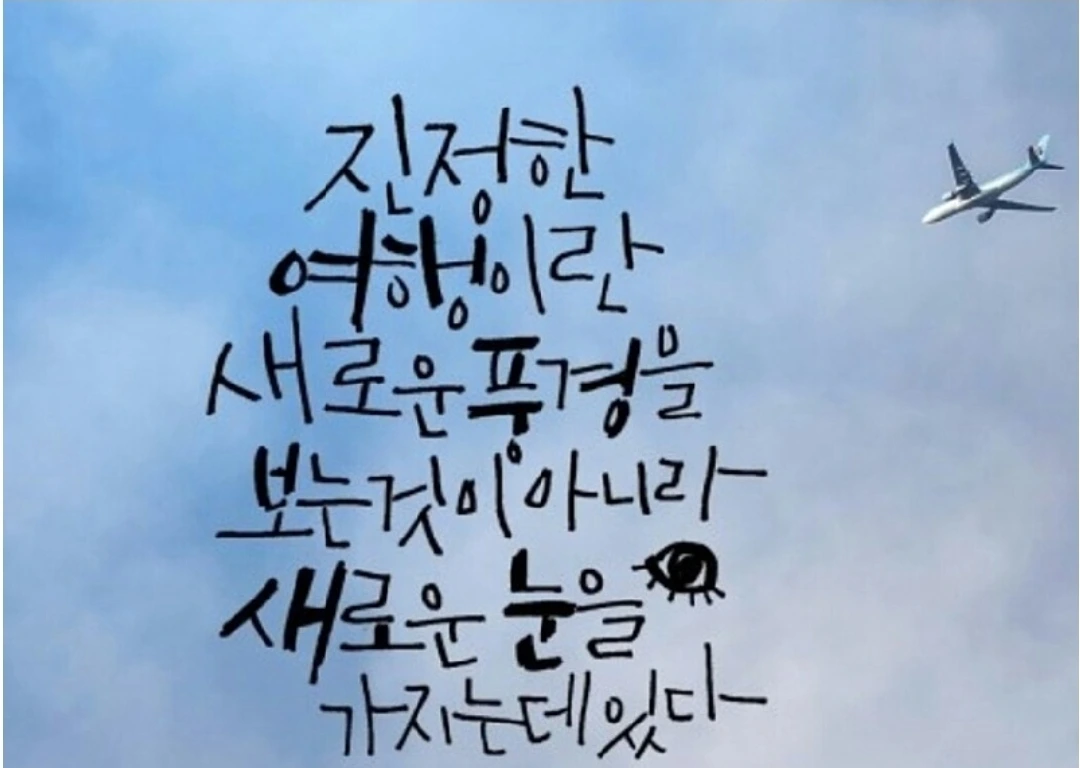 진정한
여행이란
새로운 풍경을
보는것이 아니라
새로운 눈을
가지는데 있다